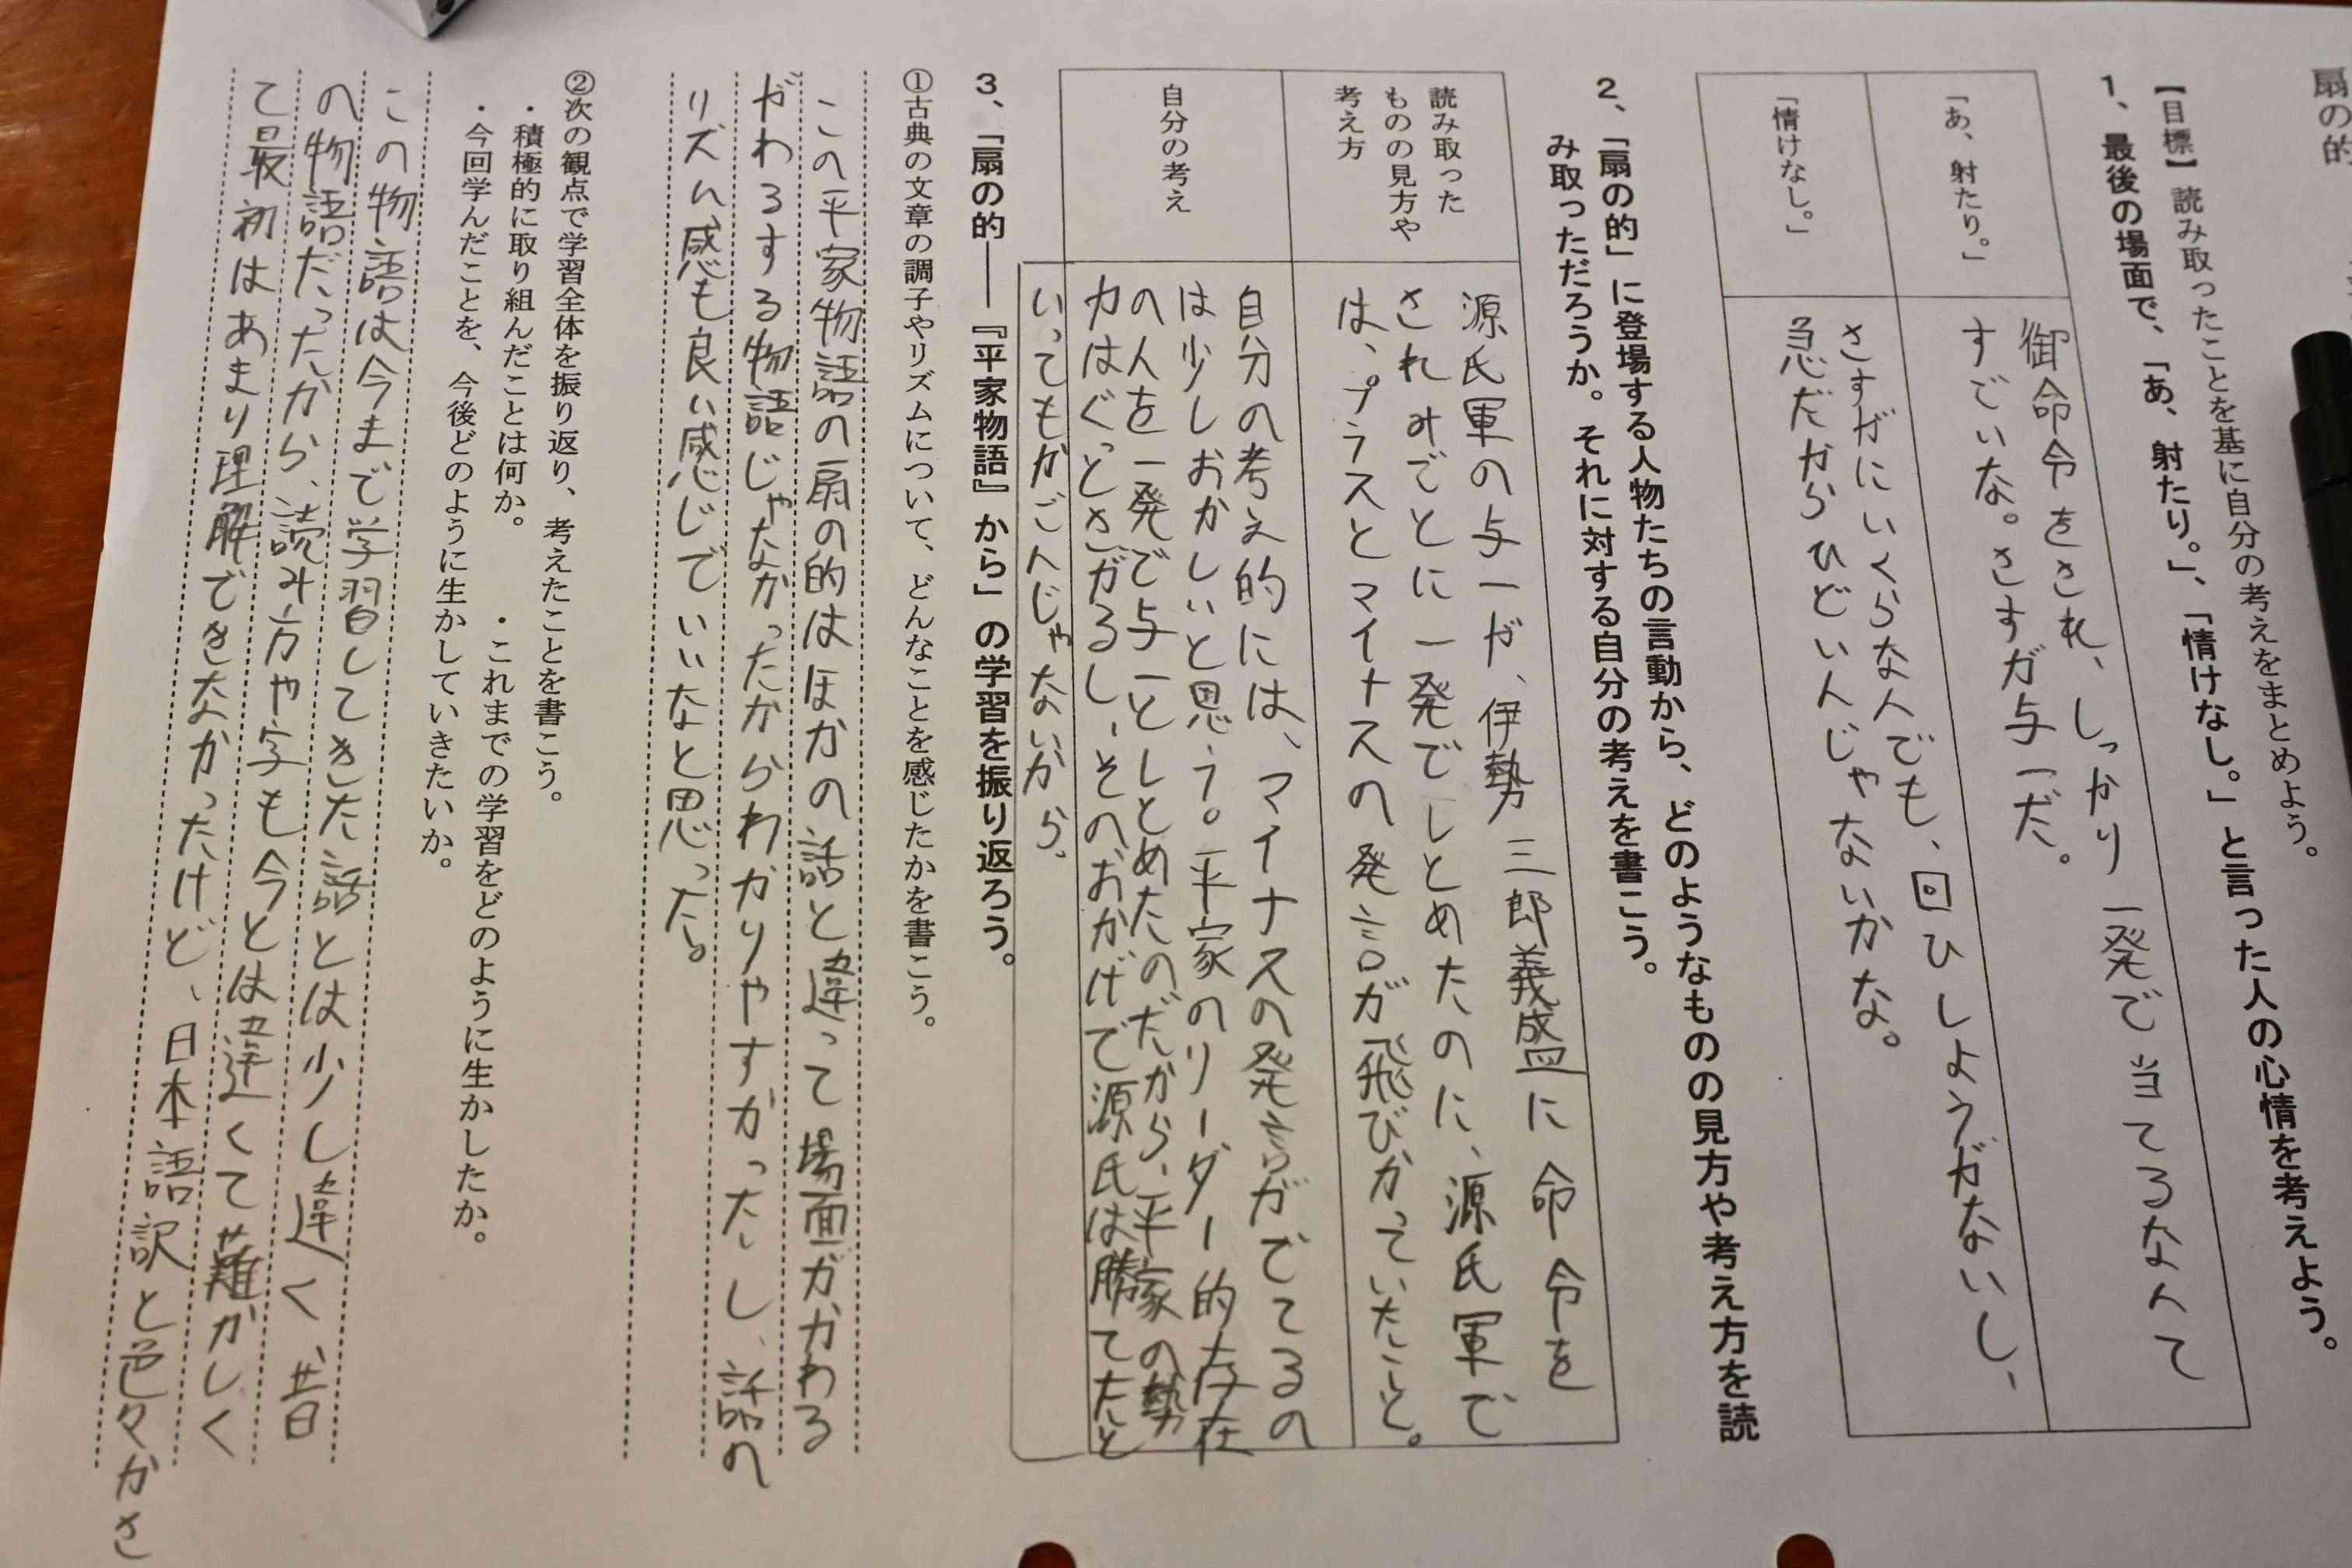 扇の的
【目標】読み取ったことを基に自分の考えをまとめよう。
1、最後の場面で、「あ、射たり。」、「情けなし。」と言った人の心情を考えよう。
「あ、射たり。」
御命令をされ、しっかり一発で当てるなんて
すごいな。さすが与一だ。
「情けなし。」
さすがにいくらな人でも、回ひしようがないし、
急だからひどいんじゃないかな。
2、「扇の的」に登場する人物たちの言動から、どのようなものの見方や考え方を読
み取っただろうか。それに対する自分の考えを書こう。
読み取った
ものの見方や
考え方
源氏軍の与一が、伊勢三郎義盛に命令を
されみごとに一発でしとめたのに、源氏軍で
は、プラスとマイナスの発言が飛びかっていたこと。
自分の考え
自分の考え的には、マイナスの発言がでてるの
は少しおかしいと思う。平家のリーダー的存在
の人を一発で与一としとめたのだから、平家の勢
力はぐっとさがるし、そのおかげで源氏は勝てたと
いってもかごんじゃないから、
3、「扇の的――『平家物語』から」の学習を振り返ろう。
①古典の文章の調子やリズムについて、どんなことを感じたかを書こう。
この平家物語の扇の的はほかの話と違って場面がかわる
がわるする物語じゃなかったからわかりやすかったし、話の
リズム感も良い感じでいいなと思った。
②次の観点で学習全体を振り返り、考えたことを書こう。
・積極的に取り組んだことは何か。
・これまでの学習をどのように生かしたか。
・今回学んだことを、今後どのように生かしていきたいか。
この物語は今まで学習してきた話とは少し違く、昔
の物語だったから、読み方や字も今とは違くて難かしく
て最初はあまり理解できなかったけど、日本語訳と色々かさ